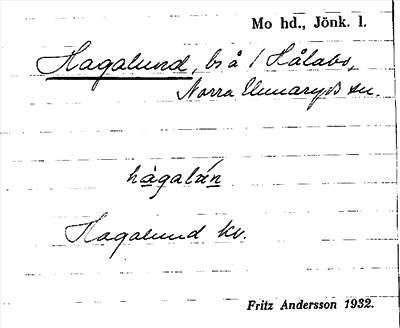 Mo hd., Jönk. l.
Hagalund, bs å 1 Hålabo,
Norra Unnaryds sn.
hàgalǽn
Hagalund kv.
Fritz Andersson 1932.